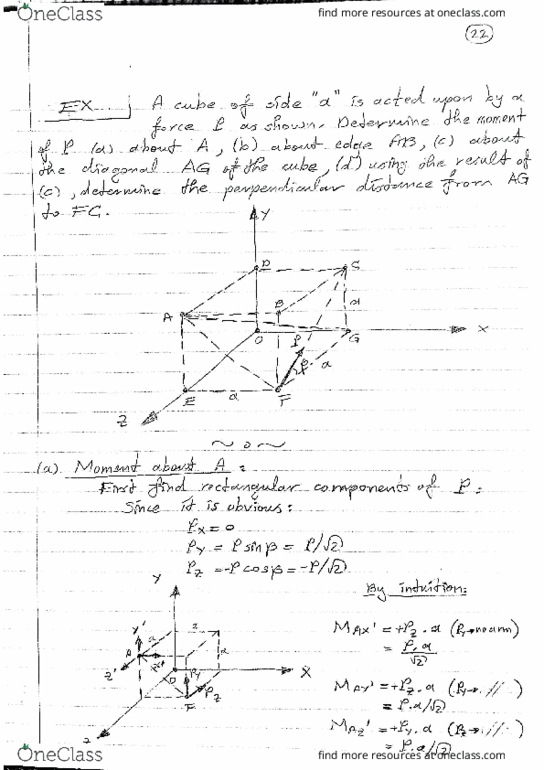 OneClass
find more resources at oneclass.com
22
EX
A cube of side "a" is acted upon by a
force P as shown. Determine the moment
of P (a) about A, (b) about edge AB, (c) about
the diagonal AG of the cube, (d) using the result of
(c), determine the perpendicular distance from AG
to FC.
Y
D
C
B
a
A
O
G
X
P
β
a
E
a
F
Z
(a) Moment about A:
First find rectangular components of P:
Since it is obvious:
Px = 0
Py = P sinβ = P/√2
Pz = -P cosβ = -P/√2
By intuition:
Y
Y'
a
a
A
X'
Z'
O
X
Py
Pz
F
MAx' = +Pz . a (Py→no arm)
= P.a/√2
MAy' = +Pz . a (Py→ // )
= P.a/√2
MAz' = +Py . a (Pz→ // )
= P.a/√2
OneClass
find more resources at oneclass.com